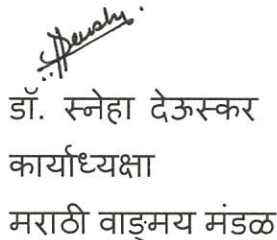 डॉ. स्नेहा देऊस्कर
कार्याध्यक्षा
मराठी वाङ्मय मंडळ